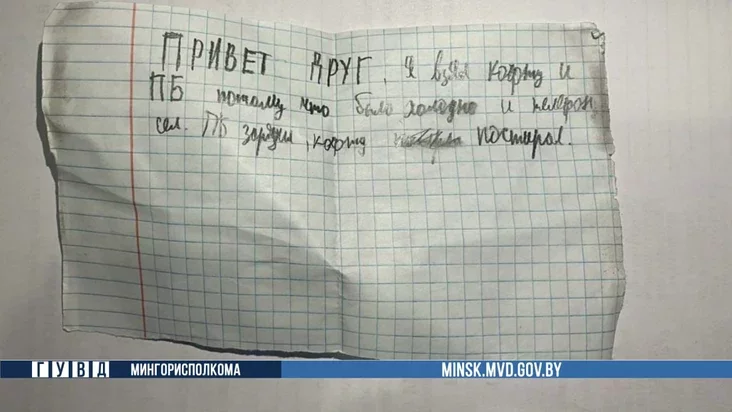 ПРИВЕТ ДРУГ, Я взял кофту и
ПБ потому что было холодно и телефон
сел. ПБ зарядил, кофту постирал.
ГУВД МИНГОРИСПОЛКОМА
MINSK.MVD.GOV.BY